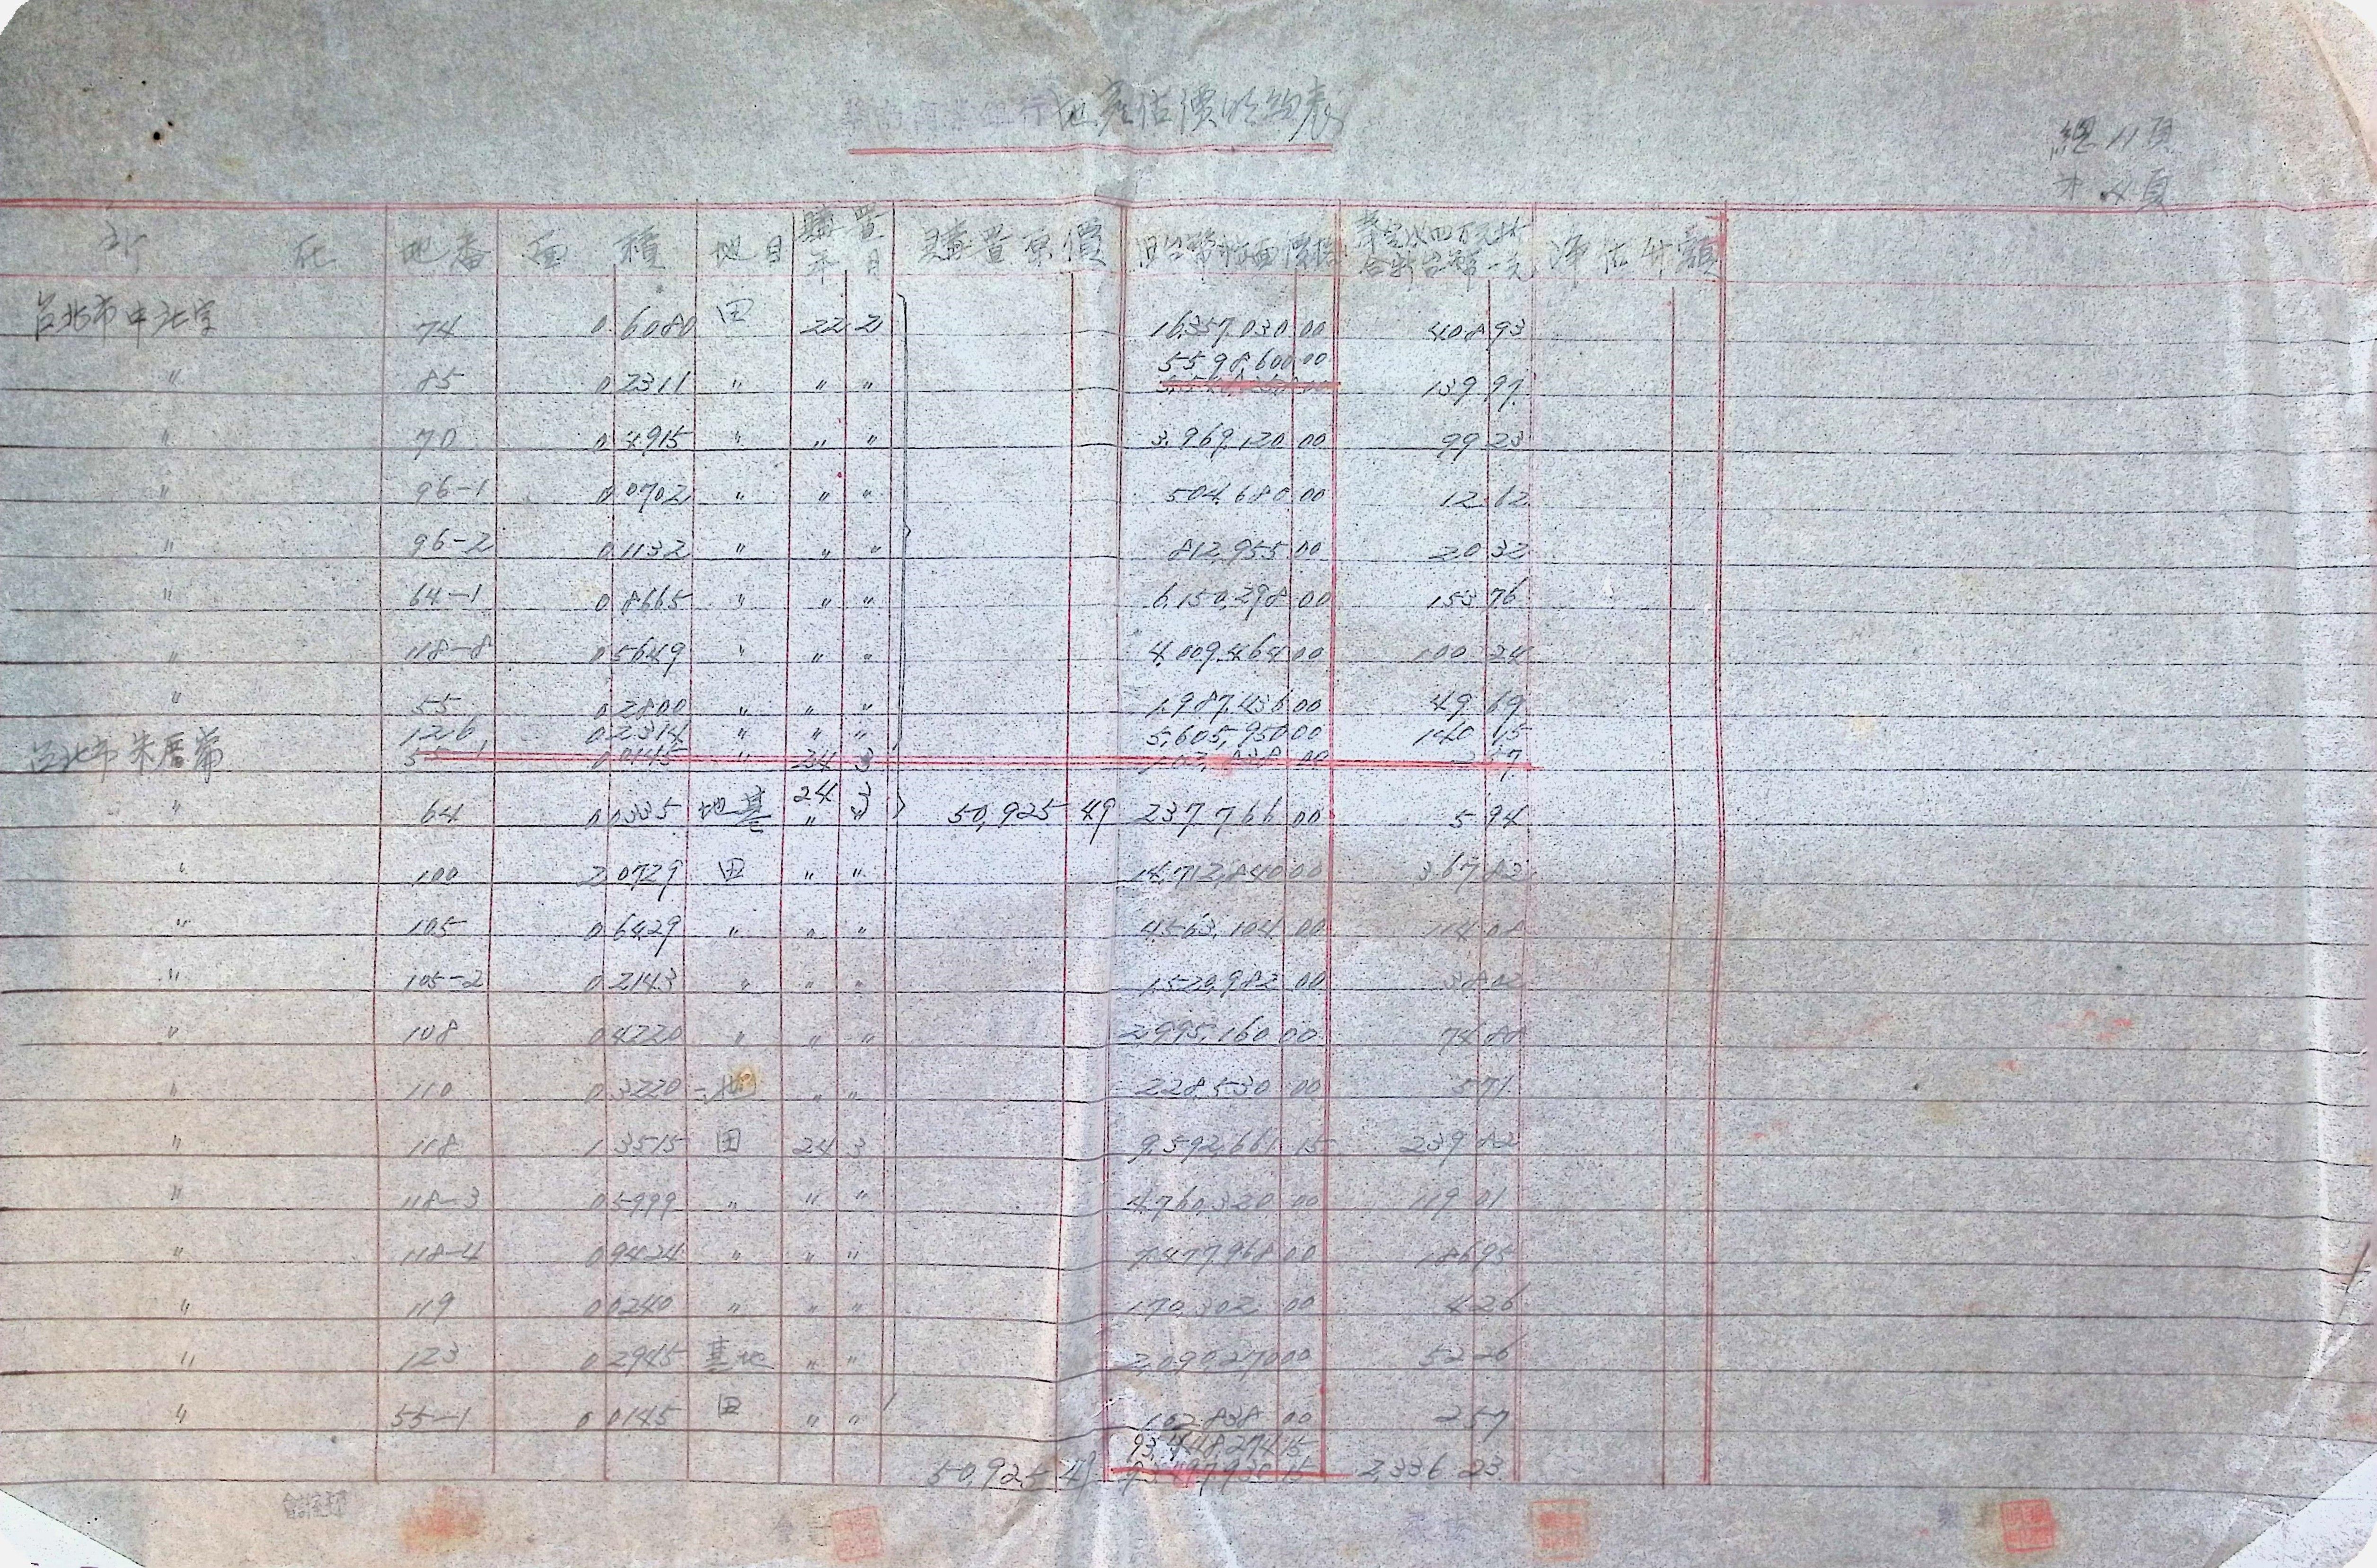 地產估價明細表
總11頁
才4頁
所在 地番 面積 地目 購置年月 購置原價 旧台幣帳面價格 合新台幣一元 淨估計額
台北市中北字 74 0.6080 田 22 2 16,357,030 00 408 93
5,598,600 00
〃 85 0.2311 〃 〃 〃 139 97
〃 70 0.4915 〃 〃 〃 3,969,120 00 99 23
〃 96-1 0.0702 〃 〃 〃 504,680 00 12 62
〃 96-2 0.1132 〃 〃 〃 812,955 00 20 32
〃 64-1 0.8665 〃 〃 〃 6,150,298 00 153 76
〃 118-8 0.5649 〃 〃 〃 4,009,464 00 100 24
〃 55 0.2800 〃 〃 〃 1,987,436 00 49 69
126 0.2314 〃 〃 〃 5,605,950 00 140 15
台北市朱厝崙 55-1 0.0145 〃 24 3 102,838 00 2 57
24 3
〃 64 0.0335 地基 〃 〃 50,925 49 237,766 00 5 94
〃 100 2.0729 田 〃 〃 14,712,840 00 367 82
〃 105 0.6429 〃 〃 〃 4,563,104 00 114 08
〃 105-2 0.2143 〃 〃 〃 1,520,982 00 38 02
〃 108 0.4220 〃 〃 〃 2,995,160 00 74 88
〃 110 0.3220 〃 〃 228,530 00 5 71
〃 118 1.3515 田 24 3 9,592,661 15 239 82
〃 118-3 0.5999 〃 〃 〃 4,760,320 00 119 01
〃 118-4 0.9424 〃 〃 〃 7,477,968 00 186 95
〃 119 0.0240 〃 〃 〃 170,302 00 4 26
〃 123 0.2945 基地 〃 〃 2,090,270 00 52 26
〃 55-1 0.0145 田 〃 〃 102,838 00 2 57
93,448,274 15
50,925 49 2,336 23